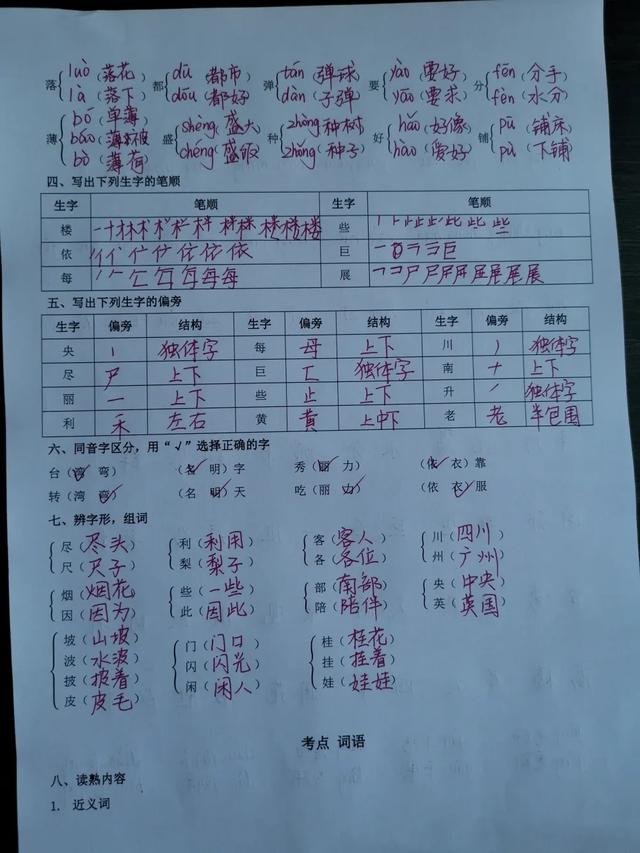 落 luò (落花) 都 dū (都市) 弹 tán (弹球) 要 yào (要好) 分 fēn (分手)
là (落下) dōu (都好) dàn (子弹) yāo (要求) fèn (水分)
薄 bó (单薄) 盛 shèng (盛大) 种 zhòng (种树) 好 hǎo (好像) 铺 pū (铺床)
báo (薄被) chéng (盛饭) zhǒng (种子) hào (爱好) pù (下铺)
bò (薄荷)
四、写出下列生字的笔顺
生字 笔顺 生字 笔顺
楼 些
依 巨
每 展
五、写出下列生字的偏旁
生字 偏旁 结构 生字 偏旁 结构 生字 偏旁 结构
央 丨 独体字 每 母 上下 川 丿 独体字
尽 尸 上下 巨 匚 独体字 南 十 上下
丽 一 上下 些 止 上下 升 丿 独体字
利 禾 左右 黄 黄 上中下 老 老 半包围
六、同音字区分，用“√”选择正确的字
台（湾 弯） （名 明）字 秀（丽 力） （依 衣）靠
转（湾 弯） （名 明）天 吃（丽 力） （依 衣）服
七、辨字形，组词
尽（尽头） 利（利用） 客（客人） 川（四川）
尺（尺子） 梨（梨子） 各（各位） 州（广州）
烟（烟花） 些（一些） 部（南部） 央（中央）
因（因为） 此（因此） 陪（陪伴） 英（英国）
坡（山坡） 门（门口） 桂（桂花）
波（水波） 闪（闪光） 挂（挂着）
披（披着） 闲（闲人） 娃（娃娃）
皮（皮毛）
考点 词语
八、读熟内容
1. 近义词